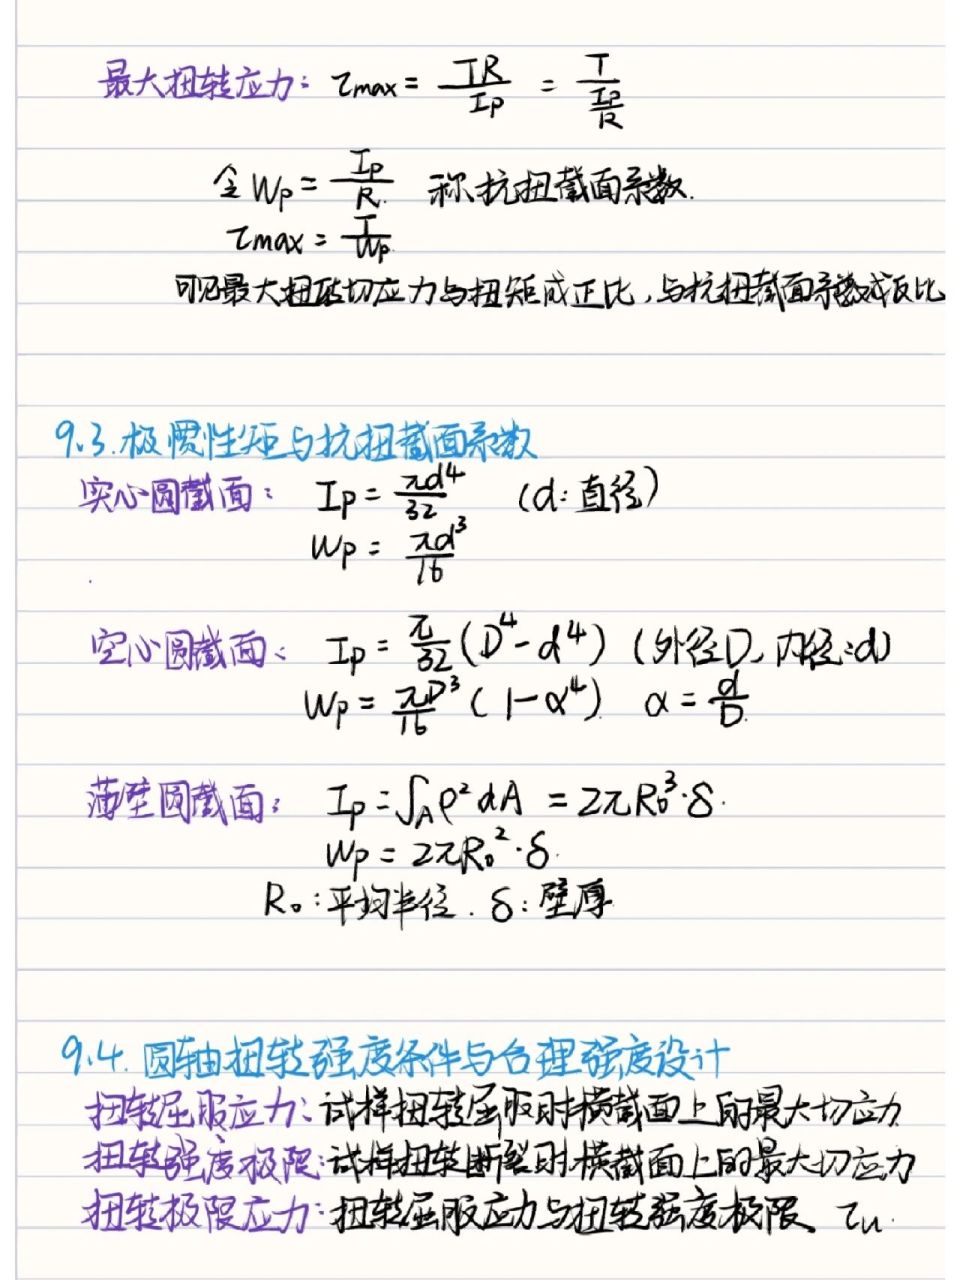 最大扭转应力: τmax = TR/Ip = T/(Ip/R)
令 Wp = Ip/R 称抗扭截面系数.
τmax = T/Wp
可见最大扭转切应力与扭矩成正比,与抗扭截面系数成反比
9.3.极惯性矩与抗扭截面系数
实心圆截面: Ip = πd⁴/32 (d:直径)
Wp = πd³/16
空心圆截面: Ip = π/32 (D⁴-d⁴) (外径D,内径:d)
Wp = πD³/16 (1-α⁴) α = d/D
薄壁圆截面: Ip = ∫A ρ² dA = 2πR₀³·δ.
Wp = 2πR₀²·δ.
R₀:平均半径. δ:壁厚.
9.4.圆轴扭转强度条件与合理强度设计
扭转屈服应力:试样扭转屈服时横截面上的最大切应力
扭转强度极限:试样扭转断裂时横截面上的最大切应力
扭转极限应力:扭转屈服应力与扭转强度极限、τu.